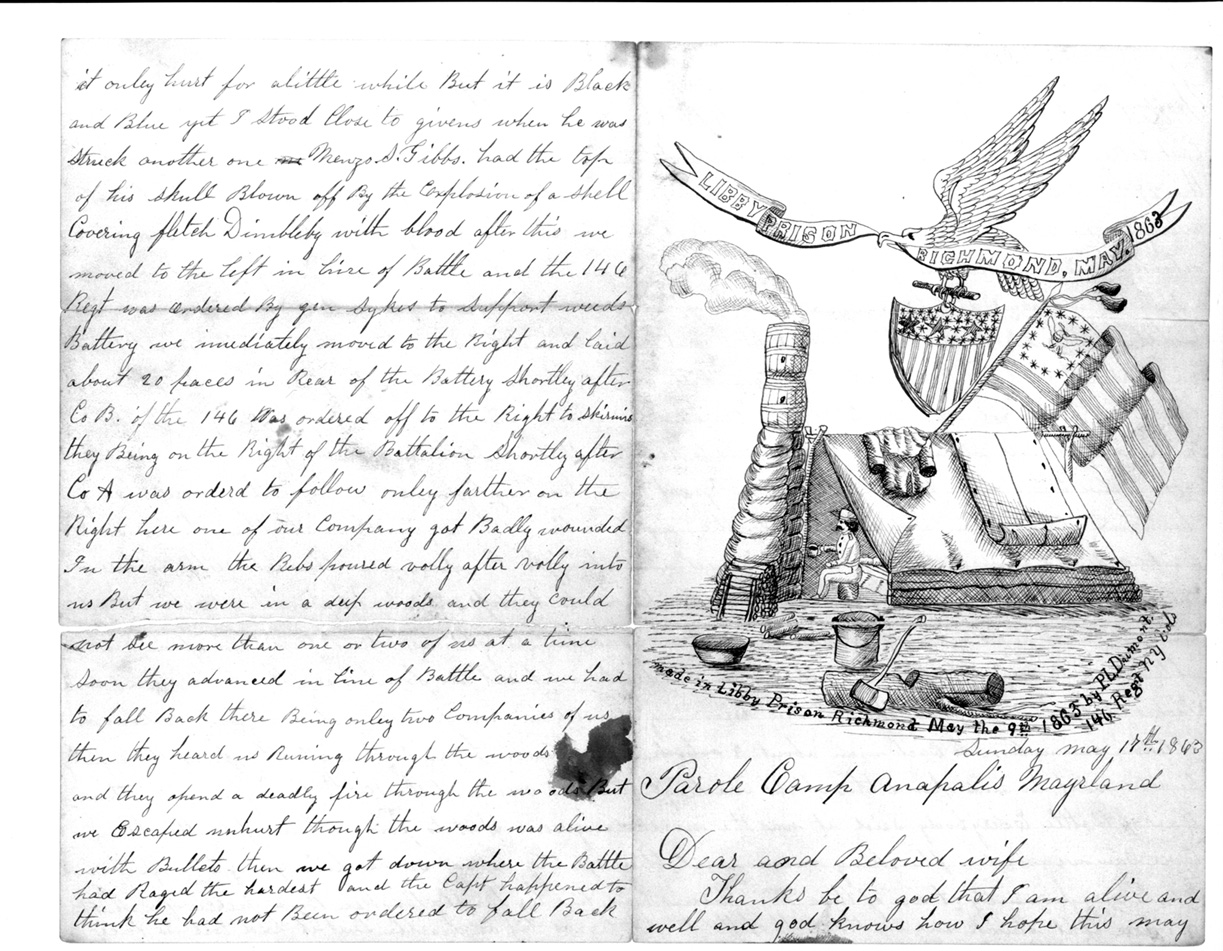 it onley hurt for alittle while But it is Black
and Blue yet I stood Close to givens when he was
struck another one Menzo S. Gibbs. had the top
of his skull Blown off By the Explosion of a shell
Covering fletch Dimbleby with blood after this we
moved to the left in line of Battle and the 146
Regt was ordered By gen Sykes to support weeds
Battery we imediatly moved to the Right and laid
about 20 paces in Rear of the Battery Shortley after
Co B. of the 146 Was ordered off to the Right to skirmis
they Being on the Right of the Battalion Shortley after
Co A was orderd to follow onley farther on the
Right here one of our Company got Badly wounded
In the arm the Rebs poured volly after volly into
us But we were in a deep woods and they could
not see more than one or two of us at a time
Soon they advanced in line of Battle and we had
to fall Back there Being onley two Companies of us
then they heard us Runing through the woods
and they opend a deadly fire through the woods But
we Escaped unhurt though the woods was alive
with Bullets then we got down where the Battle
had Raged the hardest and the Capt happened to
think he had not Been ordered to fall Back
LIBBY PRISON
RICHMOND, MAY. 1863
made in Libby Prison Richmond May the 9th 1863 by P.L. Dumont.
146 Regt N.Y. Vols
Sunday may 17th. 1863
Parole Camp Anapalis Mayrland
Dear and Beloved wife
Thanks be to god that I am alive and
well and god knows how I hope this may